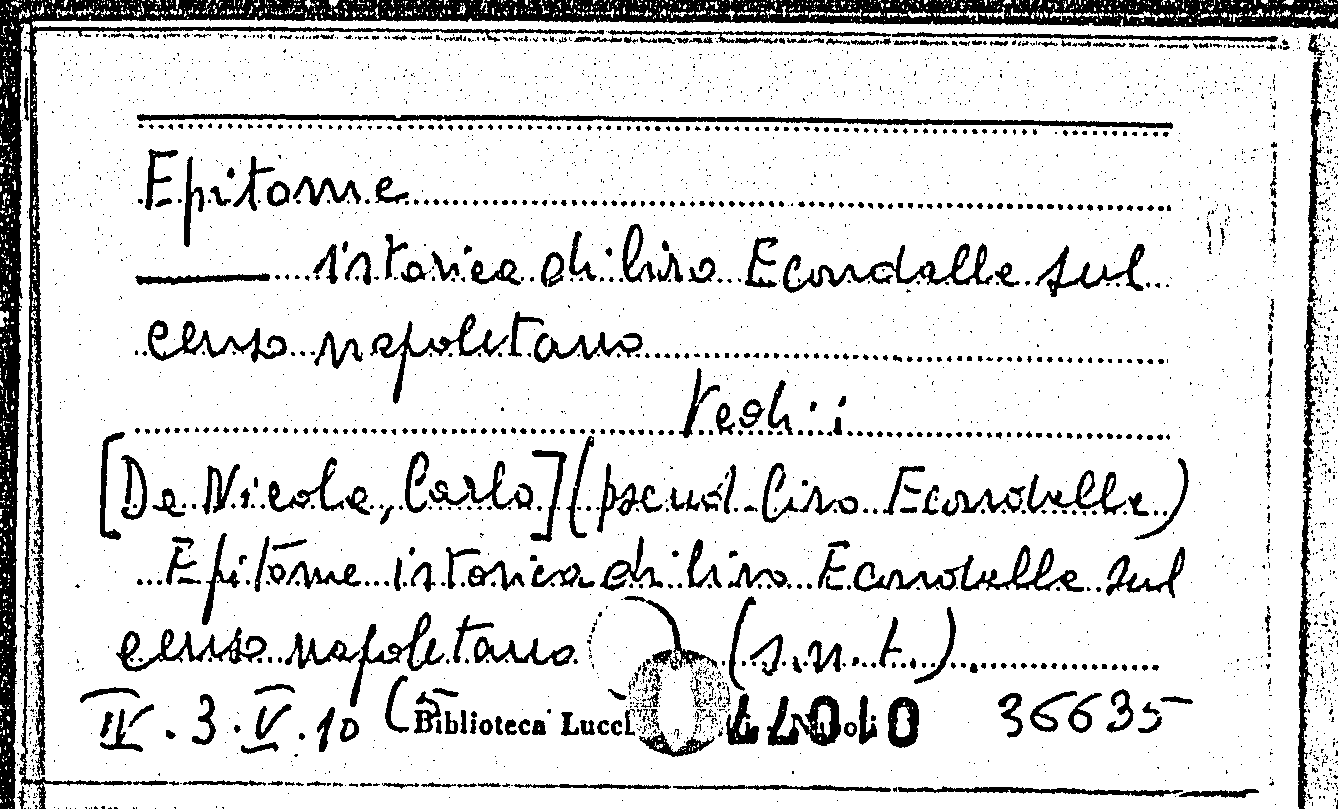 Epitome
istorica di Ciro Econdalle sul
censo napoletano
Vedi:
[De Nicola, Carlo] (pseud. Ciro Econdalle)
Epitome istorica di Ciro Econdalle sul
censo napoletano (s.n.t.).
IV.3.V.10 (5 Biblioteca 36635